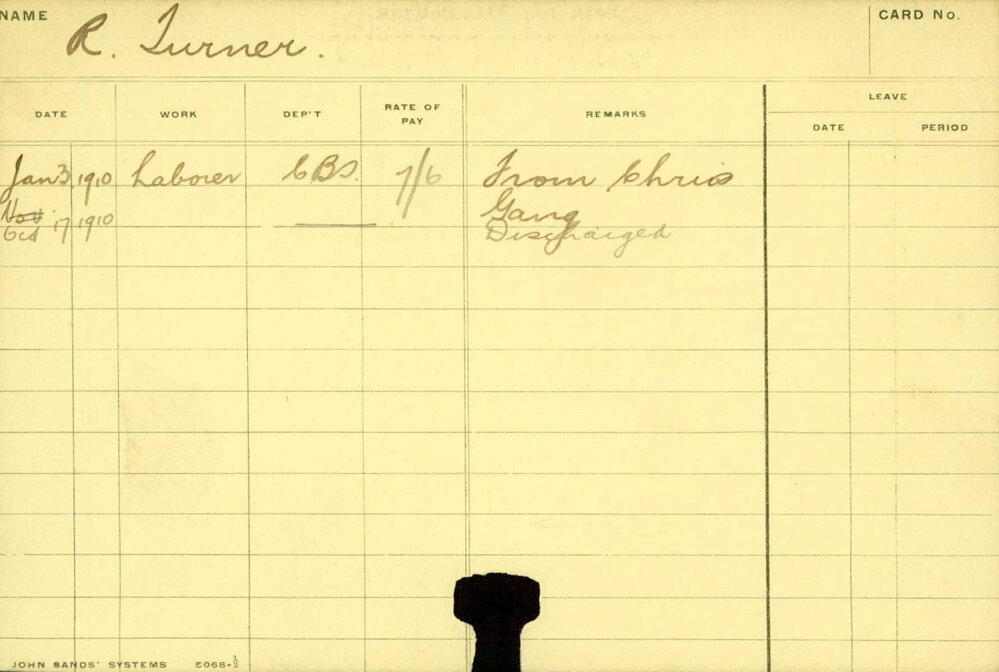 NAME
R. Turner.
CARD No.
DATE WORK DEP'T RATE OF PAY REMARKS LEAVE
DATE PERIOD
Jan 3 1910 Laborer CBS. 7/6 From Chris
Gang
Oct 17 1910 Discharged
JOHN SANDS' SYSTEMS